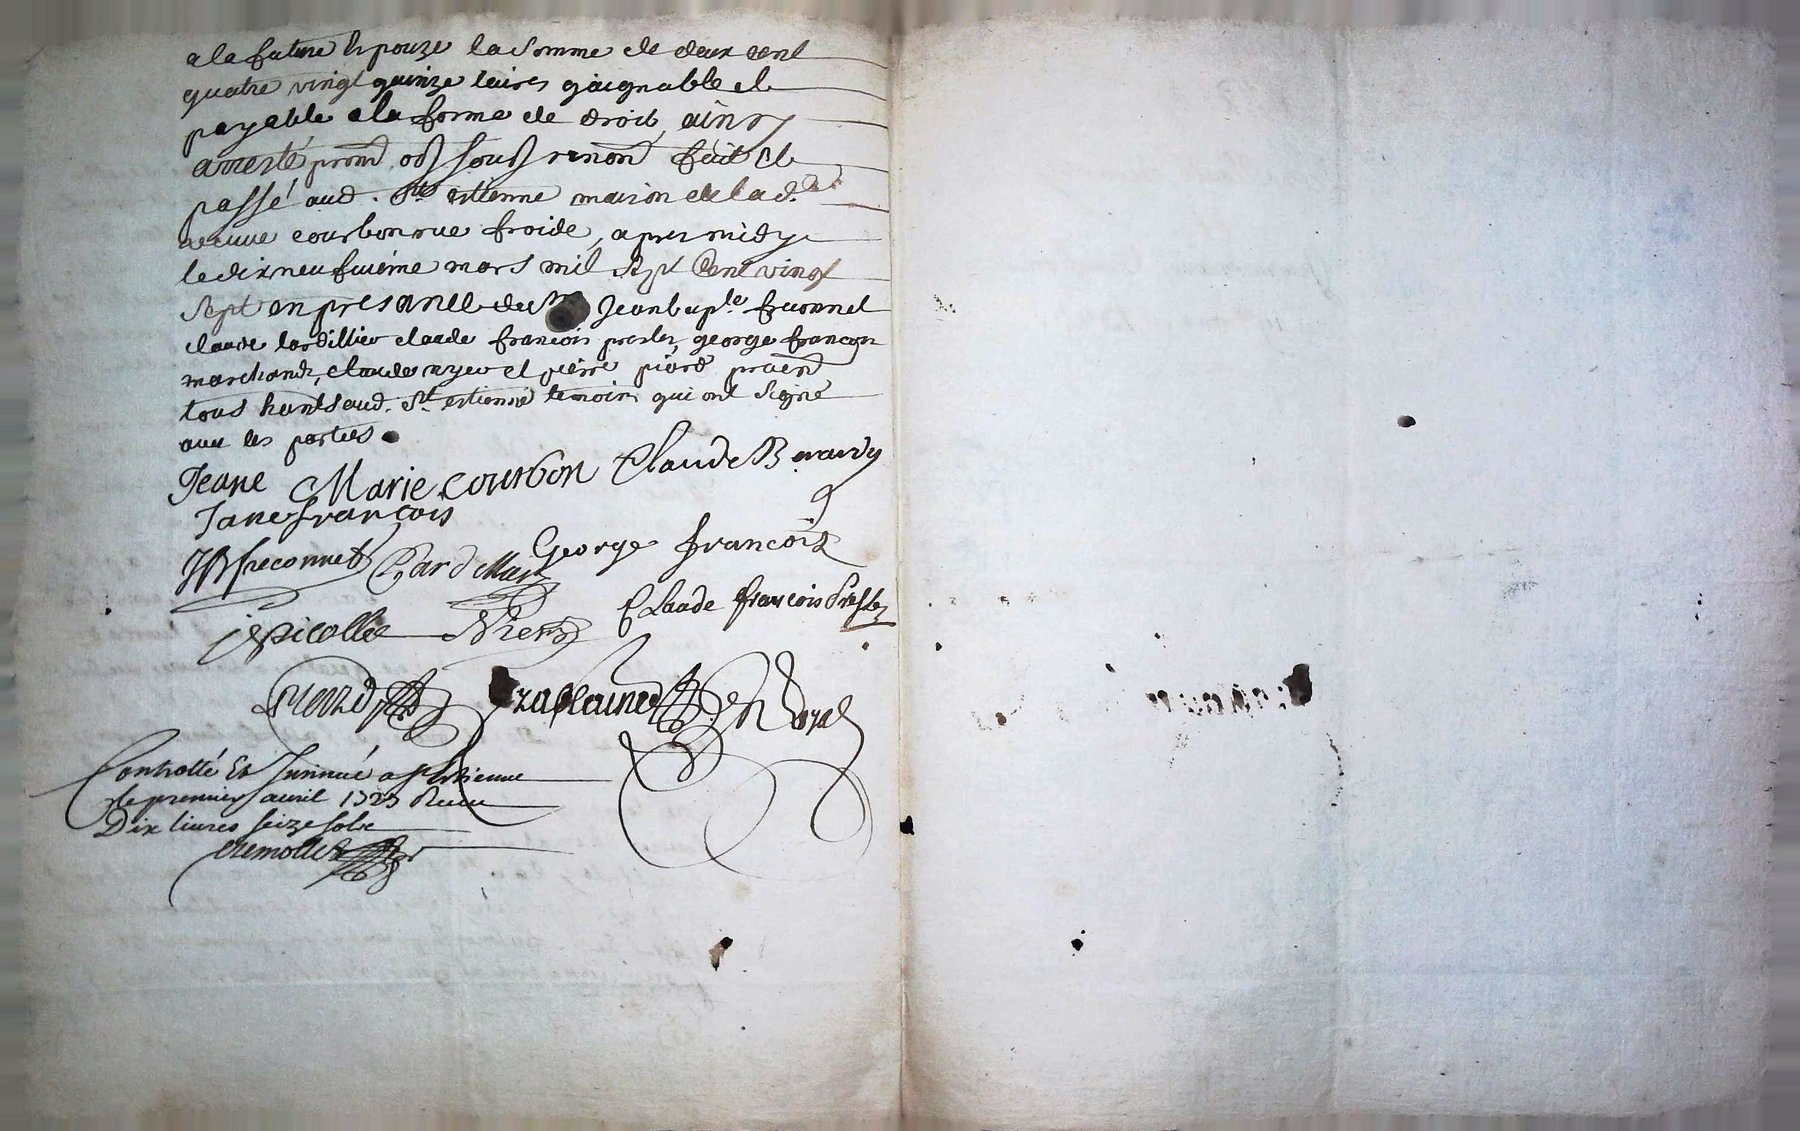 a la future Epouze la somme de deux cent
quatre vingt quinze livres gaignable et
payable a la forme de droit, ainsy
arresté prom obl soub renon fait et
passé aud. St estienne maison de lad.
veuve courbon rue froide, apres midy
le dix neufvieme mars mil sept cent vingt
sept en presance de Jean bapte freconnet
claude tardillier claude francois presles, george francois
marchands, claude et pierre piord
tous hants aud. St estienne temoins qui ont signé
avec les parties
Jeane Marie courbon Claude Beraudy
Jane françois
JB freconnet George françois
Claude françois Presles
jepicollet
Piord
Den Royal
Controllé Et Insinué a St Estienne
le premier avril 1727 Receu
Dix livres seize sols